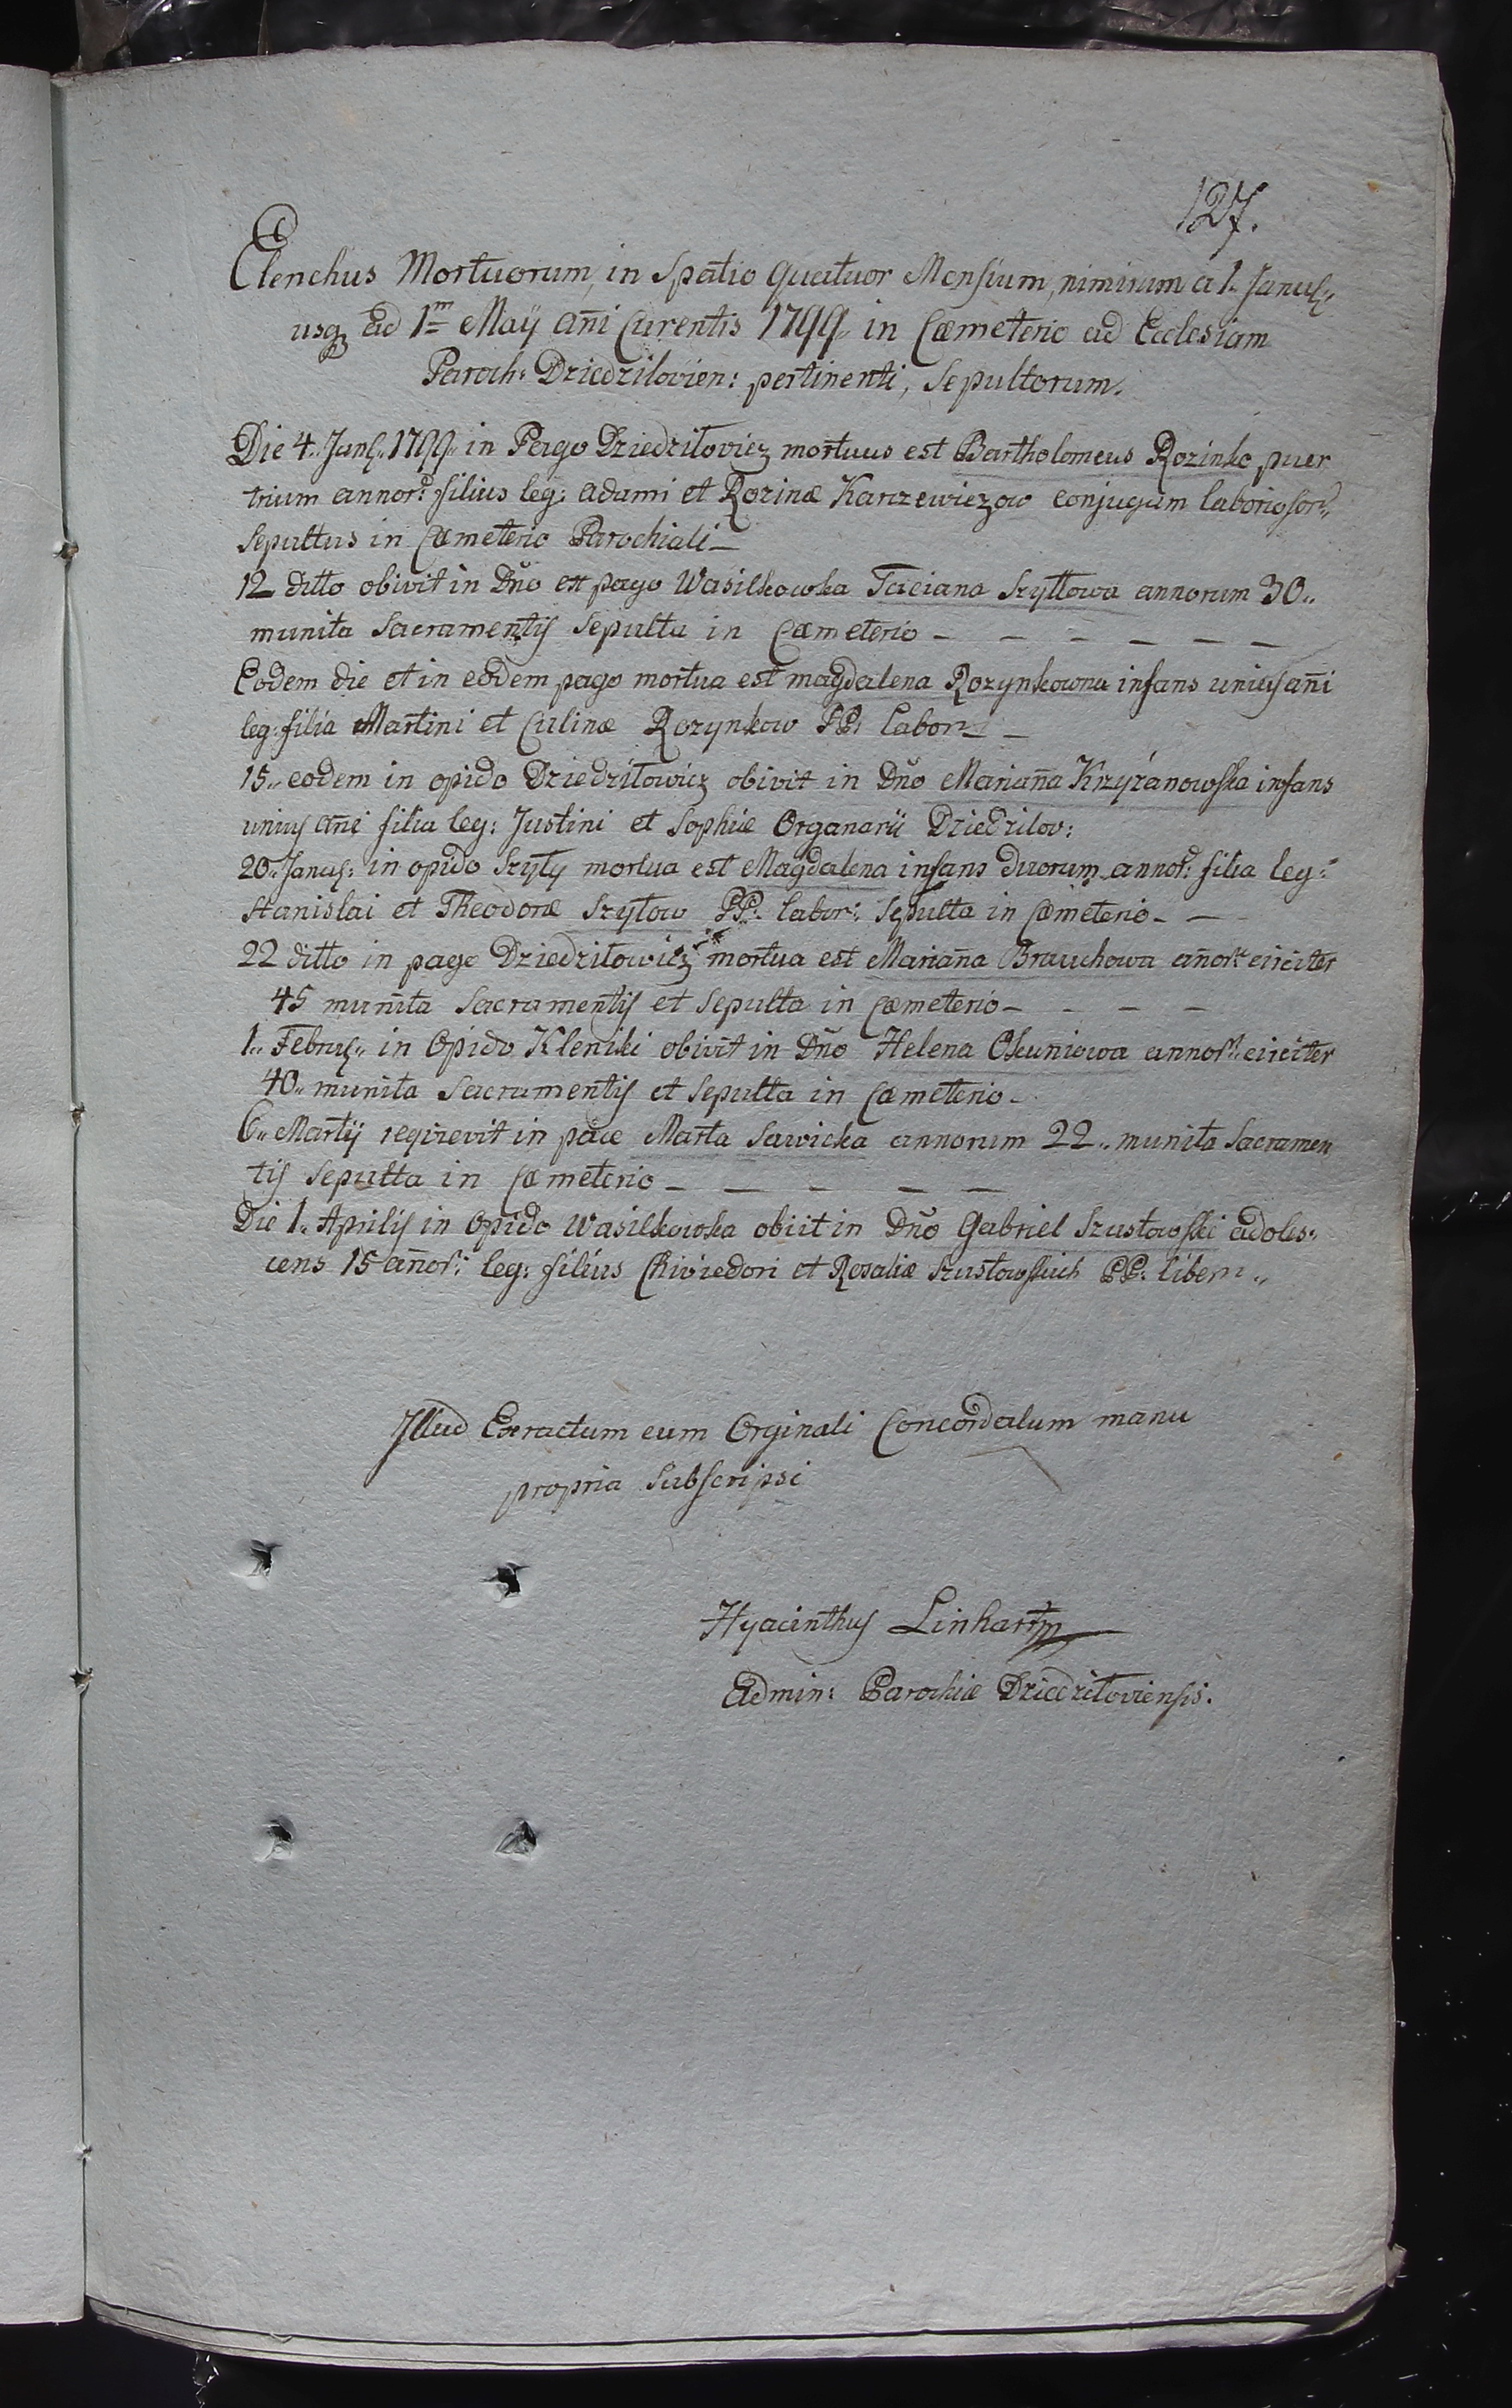 127.
Elenchus Mortuorum, in Spatio Quatuor Mensium, nimirum a 1. Januar:
usq ad 1m Maÿ añi Curentis 1799 in Cæmeterio ad Ecclesiam
Paroch: Dziedzilovien: pertinenti, Sepultorum.
Die 4. Jan: 1799 in Pago Dziedziłovicz mortuus est Bartholomeus Rozinko puer
trium annor: filius leg: Adami et Rozinæ Karczewiczow conjugum laboriosor:
Sepultus in Cæmeterio Parochiali
12 ditto obivit in Dño ex pago Wasilkowka Taciana Szyłłowa annorum 30..
munita Sacramentis Sepulta in Cæmeterio
Eodem die et in eodem pago mortua est Magdalena Rozynkowna infans unius añi
leg: filia Martini et Culinæ Rozynkow PP: Labor:
15.. eodem in opido Dziedziłowicz obivit in Dño Mariaña Krzyżanowska infans
unius añi filia leg: Justini et Sophiæ Organarii Dziedzilov:
20. Januar: in opido Szyły mortua est Magdalena infans duorum annor: filia leg:
Stanislai et Theodoræ Szyłow PP: labor: Sepulta in Cæmeterio
22 ditto in pago Dziedziłowicz mortua est Mariaña añor: circiter
45 munita Sacramentis et Sepulta in Cæmeterio
1.. Febru: in Opido Kleniki obivit in Dño Helena Okuniowa annor: circiter
40.. munita Sacramentis et Sepulta in Cæmeterio
6.. Martij reqvievit in pace Marta Sawicka annorum 22.. munita Sacramen
tis Sepulta in Cæmeterio
Die 1.. Aprilis in Opido Wasilkowka obiit in Dño Gabriel Szustowski adoles:
cens 15 añor: leg: filius et Rosaliæ Szustowskich PP: libern..
Illud Exractum cum Orginali Concordatum manu
propria Subscripsi
Hyacinthus Linhart
Admin: Parochiæ Dziedziłoviensis.